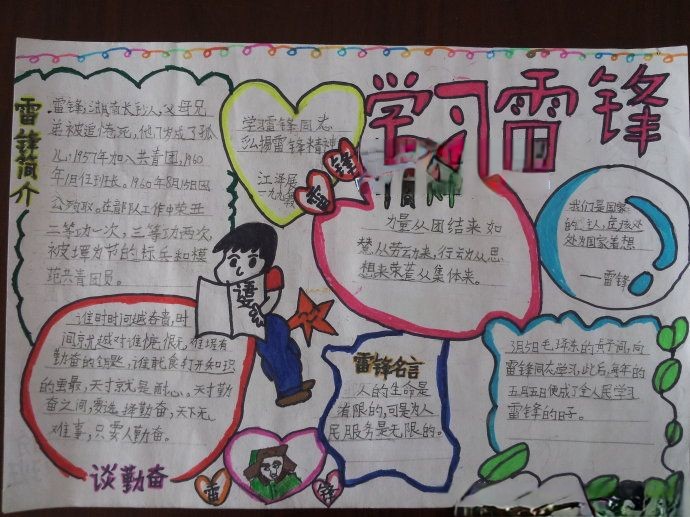 学习雷锋
雷锋简介
雷锋,湖南长沙人,父母兄
弟被迫害死,他7岁成了孤
儿。1957年加入共青团,1960
年1月任班长。1960年8月15日因
公殉职。在部队工作中荣立
二等功一次,三等功两次,
被 为节约标兵和模
范共青团员。
学习雷锋同志
弘扬雷锋精神
江泽民
一九九
雷
锋
力量从团结来 如
慧从劳动来,行动从思
想来荣誉从集体来。
我们是国家
的主人,应该处
处为国家着想
——雷锋
谁时时间越吝啬,时
间 越对谁慷慨 谁拥有
勤奋的钥匙,谁就能打开知识
的 天才就是耐心。天才勤
奋之间,要选择勤奋,天下无
难事,只要人勤奋。
谈勤奋
雷锋名言
人的生命是
有限的,可是为人
民服务是无限的。
3月5日毛泽东的 ,向
雷锋同志学习,此后,每年的
五月五日便成了全人民学习
雷锋的日子。
雷
锋